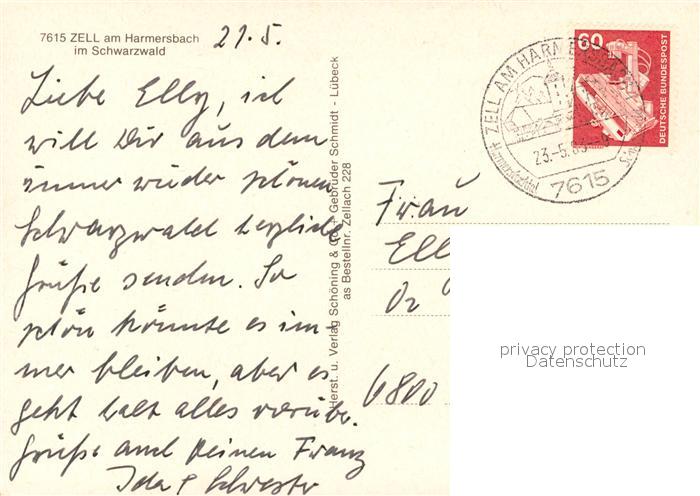 7615 ZELL am Harmersbach
im Schwarzwald
21.5.
Liebe Elly, ich
will Dir aus dem
immer wieder schönen
Schwarzwald herzliche
Grüße senden. So
schön könnte es im-
mer bleiben, aber es
geht halt alles vorüber.
Grüße auch Deinen Franz
Ida + Schwester
Herst. u. Verlag Schöning & Co + Gebrüder Schmidt - Lübeck
as Bestellnr. Zellach 228
60
DEUTSCHE BUNDESPOST
ZELL AM HARMERSBACH
23.-5.83
7615
Frau
Ell
6800
privacy protection
Datenschutz